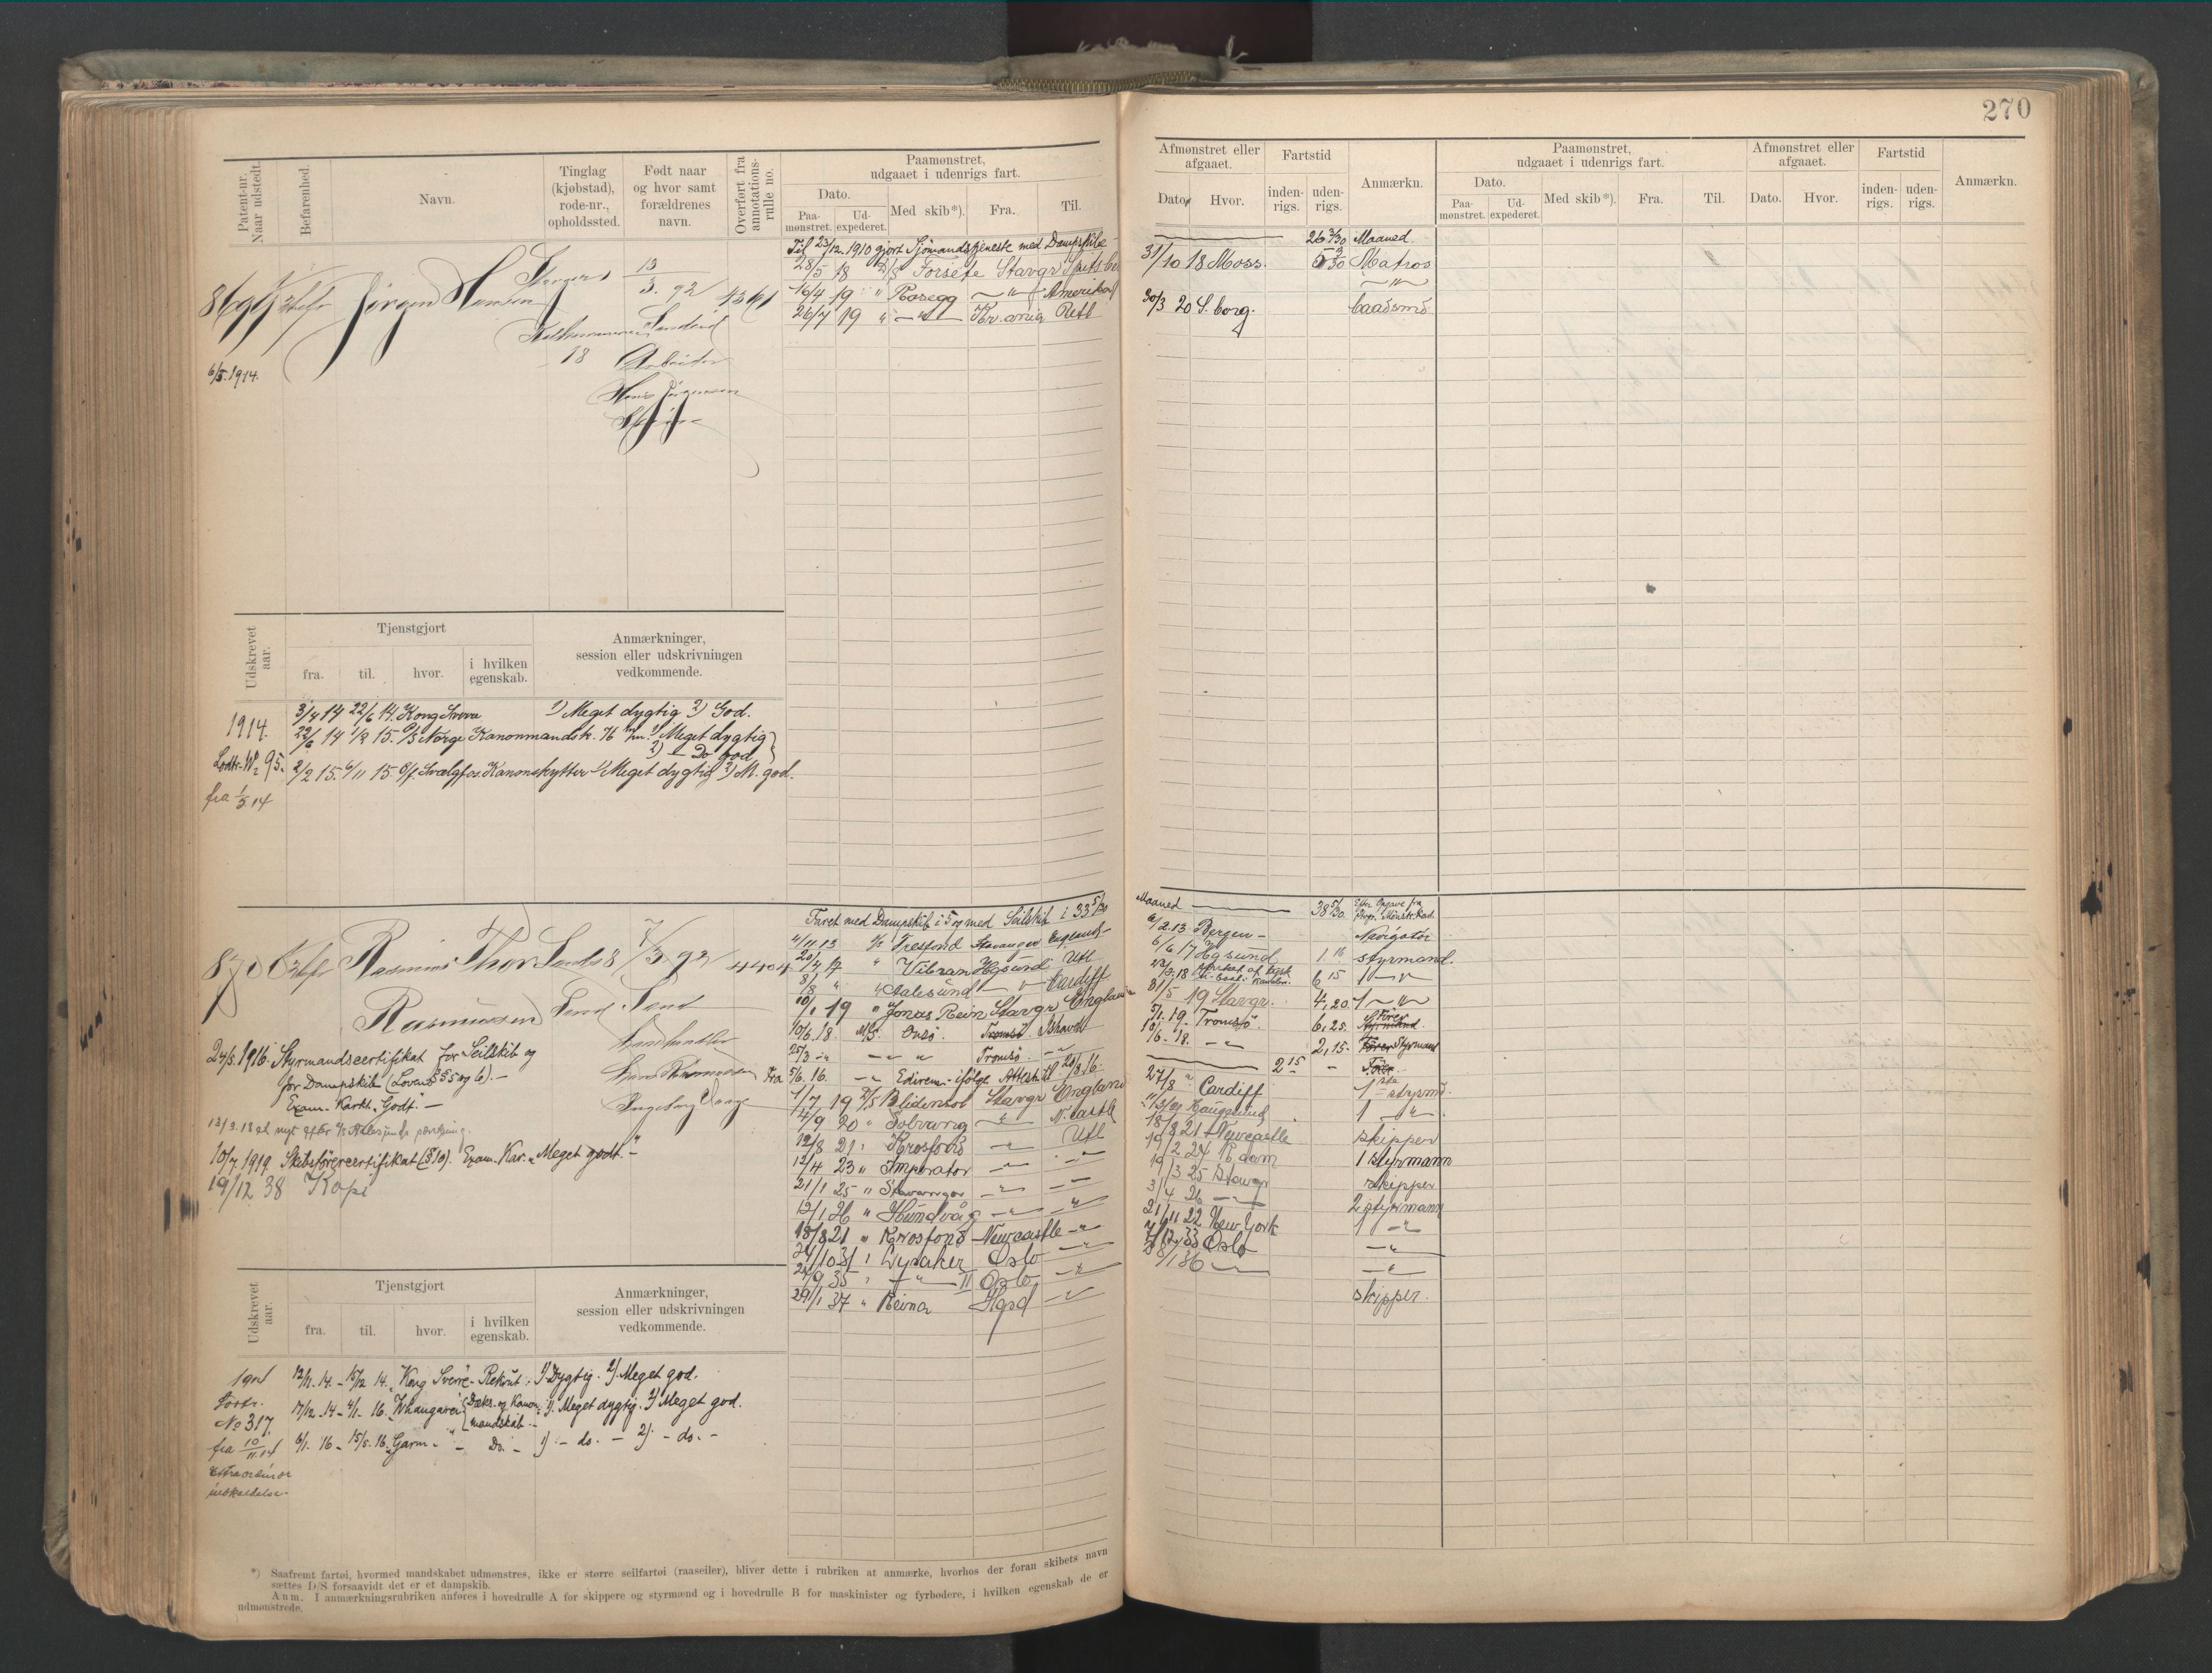 270
Patent-nr. Naar udstedt.
Befarenhed.
Navn.
Tinglag (kjøbstad), rode-nr., opholdssted.
Født naar og hvor samt forældrenes navn.
Overført fra annotations-rulle no.
Paamønstret, udgaaet i udenrigs fart.
Dato.
Paa-mønstret.
Ud-expederet.
Med skib*).
Fra.
Til.
Afmønstret eller afgaaet.
Dato.
Hvor.
Fartstid
inden-rigs.
uden-rigs.
Anmærkn.
Paamønstret, udgaaet i udenrigs fart.
Dato.
Paa-mønstret.
Ud-expederet.
Med skib*).
Fra.
Til.
Afmønstret eller afgaaet.
Dato.
Hvor.
Fartstid
inden-rigs.
uden-rigs.
Anmærkn.
8699 Jørgen Hansen
13/3. 92 1361
18 Arbeider
Hans Jørgensen
6/5. 1914.
Til 23/12. 1910 gjort Sjömandstjeneste med Dampskibe
26 3/30 Maaned.
28/5 18 D/S Forsete Stavgr
31/10 18 Moss. Matros
16/4 19 " Rosegg — " — Amerika
— " —
26/7 19 " — " — Kr.ania Utl
30/3 20 S. borg. baadsmd
Udskrevet aar.
Tjenstgjort
fra.
til.
hvor.
i hvilken egenskab.
Anmærkninger, session eller udskrivningen vedkommende.
1914.
3/4 14 22/6 14. Kong Sverre 1) Meget dygtig 2) God.
22/6 14 1/2 15. P/S Norge Kanonmandsk. 76 mm. 1) Meget dygtig
2) — Do god
Lodtr. No 95.
2/2 15. 6/11 15. Svælgfos Kanonskytter 1) Meget dygtig 2) M. god.
fra 1/5 14
8700 Rasmus Thor
Rasmussen
7/3. 92 4404
Sand Sand
Ingeborg
24/5. 1916. Styrmandscertifikat for Seilskib og
for Dampskib (Lovens § 5 og 6). —
Exam. Karkt. "Godt". —
10/7 1919 Skibsførercertifikat (§ 10). Exam. Kar. "Meget godt." —
19/12 38 Kopi
Faret med Dampskib i 5 og med Seilskib i 33 5/30
Maaned — 38 5/30.
4/11. 13 Tresfond Stavanger England
6/2. 13 Bergen — Navigatør
" Vibran Hgsund Utl
6/6 17 Hgsund styrmand.
8/18 " " Aalesund — " — Cardiff
6 15 1 — " —
10/1 19 " Jonas Rein Stavgr England
19 Stavgr. 4,20. 1 — " —
10/6. 18. M/S. Onsö. Tromsö. Ishavet
19. Tromsö. 6,25. Förer
Tromsö.
10/6. 18. — " — 2,15. Styrmand
Fra 5/6. 16. — " — Edirem — ifølge Attest til 20/8. 16.
2 15 — Förer.
1/7 19 D/S Blidensol Stavgr England
27/8 " Cardiff 1ste styrmd.
14/9 20 " Solvang — " — N.castle
Haugesund 1 — " —
12/8 21 " Krosfond — " — Utl
18/8 21 Newcastle skipper
12/4 23 " Imperator — " — — " —
19/2 24 R.dam 1 styrmann
21/1 25 " Stavanger — " — — " —
19/3 25 Stavgr skipper
12/1 26 " Hundvåg — " — — " —
3/4 26 — " — 2 styrmann
18/8 21 " Krosfond Newcastle — " —
21/11 22 New York 1 — " —
24/10 31 " Lysaker Oslo — " —
33 Oslo — " —
24/9 35 " — " — II Oslo — " —
8/1 36 — " — — " —
29/1 37 " Reina Hgsd — " —
skipper.
Udskrevet aar.
Tjenstgjort
fra.
til.
hvor.
i hvilken egenskab.
Anmærkninger, session eller udskrivningen vedkommende.
1914 12/11. 14. — 15/12 14. Kong Sverre — Rekrut: 1) Dygtig. 2) Meget god.
17/12. 14 — 4/1. 16. Whangarei Dæks. og Kanon-mandskab. — 1) Meget dygtig. 2) Meget god.
No 317.
fra 10/11. 14 6/1. 16 — 15/5. 16. Garm. — " — Do. — 1) — do. — 2) — do. —
Extraordinær
indkaldelse.
*) Saafremt fartøi, hvormed mandskabet udmønstres, ikke er større seilfartøi (raaseiler), bliver dette i rubriken at anmærke, hvorhos der foran skibets navn
sættes D/S forsaavidt det er et dampskib.
Anm. I anmærkningsrubriken anføres i hovedrulle A for skippere og styrmænd og i hovedrulle B for maskinister og fyrbødere, i hvilken egenskab de er
udmønstrede.